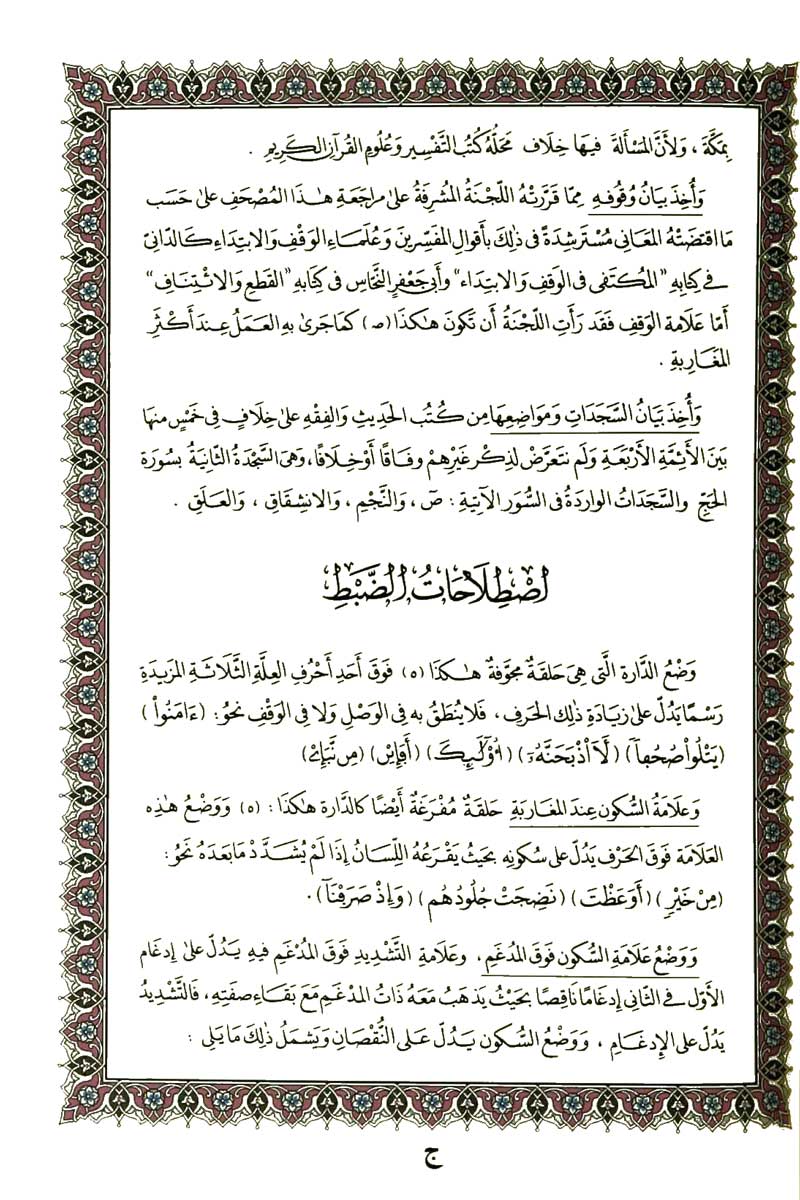 بِمَكَّةَ ، وَلِأَنَّ المَسْأَلَةَ فِيهَا خِلَافٌ مَحَلُّهُ كُتُبُ التَّفْسِيرِ وَعُلُومِ القُرْآنِ الكَرِيمِ .
وَأُخِذَ بَيَانُ وُقُوفِهِ مِمَّا قَرَّرَتْهُ اللَّجْنَةُ المُشْرِفَةُ عَلَى مُرَاجَعَةِ هَٰذَا المُصْحَفِ عَلَى حَسَبِ
مَا اقتَضَتْهُ المَعَانِي مُسْتَرشِدَةً فِي ذَٰلِكَ بِأَقوَالِ المُفَسِّرِينَ وَعُلَمَاءِ الوَقْفِ وَالابتِدَاءِ كَالدَّانِيِّ
فِي كِتَابِهِ "المُكتَفَى فِي الوَقفِ وَالابتِدَاء" وَأَبِي جَعْفَرٍ النَّحَّاسِ فِي كِتَابِهِ "القَطعِ وَالائْتِنَافِ"
أَمَّا عَلَامَةُ الوَقفِ فَقَد رَأَتِ اللَّجْنَةُ أَن تَكُونَ هَٰكَذَا (صـ) كَمَا جَرَىٰ بِهِ العَمَلُ عِندَ أَكْثَرِ
المَغَارِبَةِ .
وَأُخِذَ بَيَانُ السَّجَدَاتِ وَمَوَاضِعِهَا مِن كُتُبِ الحَدِيثِ وَالفِقْهِ عَلَى خِلَافٍ فِي خَمْسٍ مِنهَا
بَيْنَ الأَئِمَّةِ الأَرْبَعَةِ وَلَم نَتَعَرَّضْ لِذِكْرِ غَيْرِهِمْ وِفَاقًا أَوْ خِلَافًا، وَهِيَ السَّجْدَةُ الثَّانِيَةُ بِسُورَةِ
الحَجِّ وَالسَّجَدَاتُ الوَارِدَةُ فِي السُّوَرِ الآتِيَةِ : صٓ ، وَالنَّجْمِ ، وَالانشِقَاقِ ، وَالعَلَقِ .
اصْطِلَاحَاتُ الضَّبْطِ
وَضْعُ الدَّارَةِ الَّتِي هِيَ حَلقَةٌ مُجَوَّفَةٌ هَٰكَذَا (ه) فَوْقَ أَحَدِ أَحْرُفِ العِلَّةِ الثَّلَاثَةِ المَزِيدَةِ
رَسْمًا يَدُلُّ عَلَى زِيَادَةِ ذَٰلِكَ الحَرفِ، فَلَا يُنطَقُ بِهِ فِي الوَصْلِ وَلَا فِي الوَقْفِ نَحْوُ: (ءَامَنُواْ)
(يَتْلُواْ صُحُفاٗ) (لَأَاْذْبَحَنَّهُۥٓ) (أُوْلَٰٓئِكَ) (أَفَإِيْن) (مِن نَّبَإِےْ)
وَعَلَامَةُ السُّكُونِ عِندَ المَغَارِبَةِ حَلقَةٌ مُفْرَغَةٌ أَيْضًا كَالدَّارَةِ هَٰكَذَا : (ه) وَوَضْعُ هَٰذِهِ
العَلَامَةِ فَوقَ الحَرْفِ يَدُلُّ عَلَى سُكُونِهِ بِحَيْثُ يَقْرَعُهُ اللِّسَانُ إِذَا لَمْ يُشَدَّدْ مَا بَعدَهُ نَحْوُ :
(مِنْ خَيْرٖ) (أَوَعَظْتَ) (نَضِجَتْ جُلُودُهُم) (وَإِذْ صَرَفْنَآ) .
وَوَضْعُ عَلَامَةِ السُّكُونِ فَوقَ المُدغَمِ ، وَعَلَامَةِ التَّشْدِيدِ فَوْقَ المُدْغَمِ فِيهِ يَدُلُّ عَلَى إِدغَامِ
الأَوَّلِ فِي الثَّانِي إِدغَامًا نَاقِصًا بِحَيْثُ يَذهَبُ مَعَهُ ذَاتُ المُدغَمِ مَعَ بَقَاءِ صِفَتِهِ، فَالتَّشْدِيدُ
يَدُلُّ عَلَى الإِدغَامِ ، وَوَضْعُ السُّكُونِ يَدُلُّ عَلَى النُّقْصَانِ وَيَشمَلُ ذَٰلِكَ مَا يَلِي :
ج